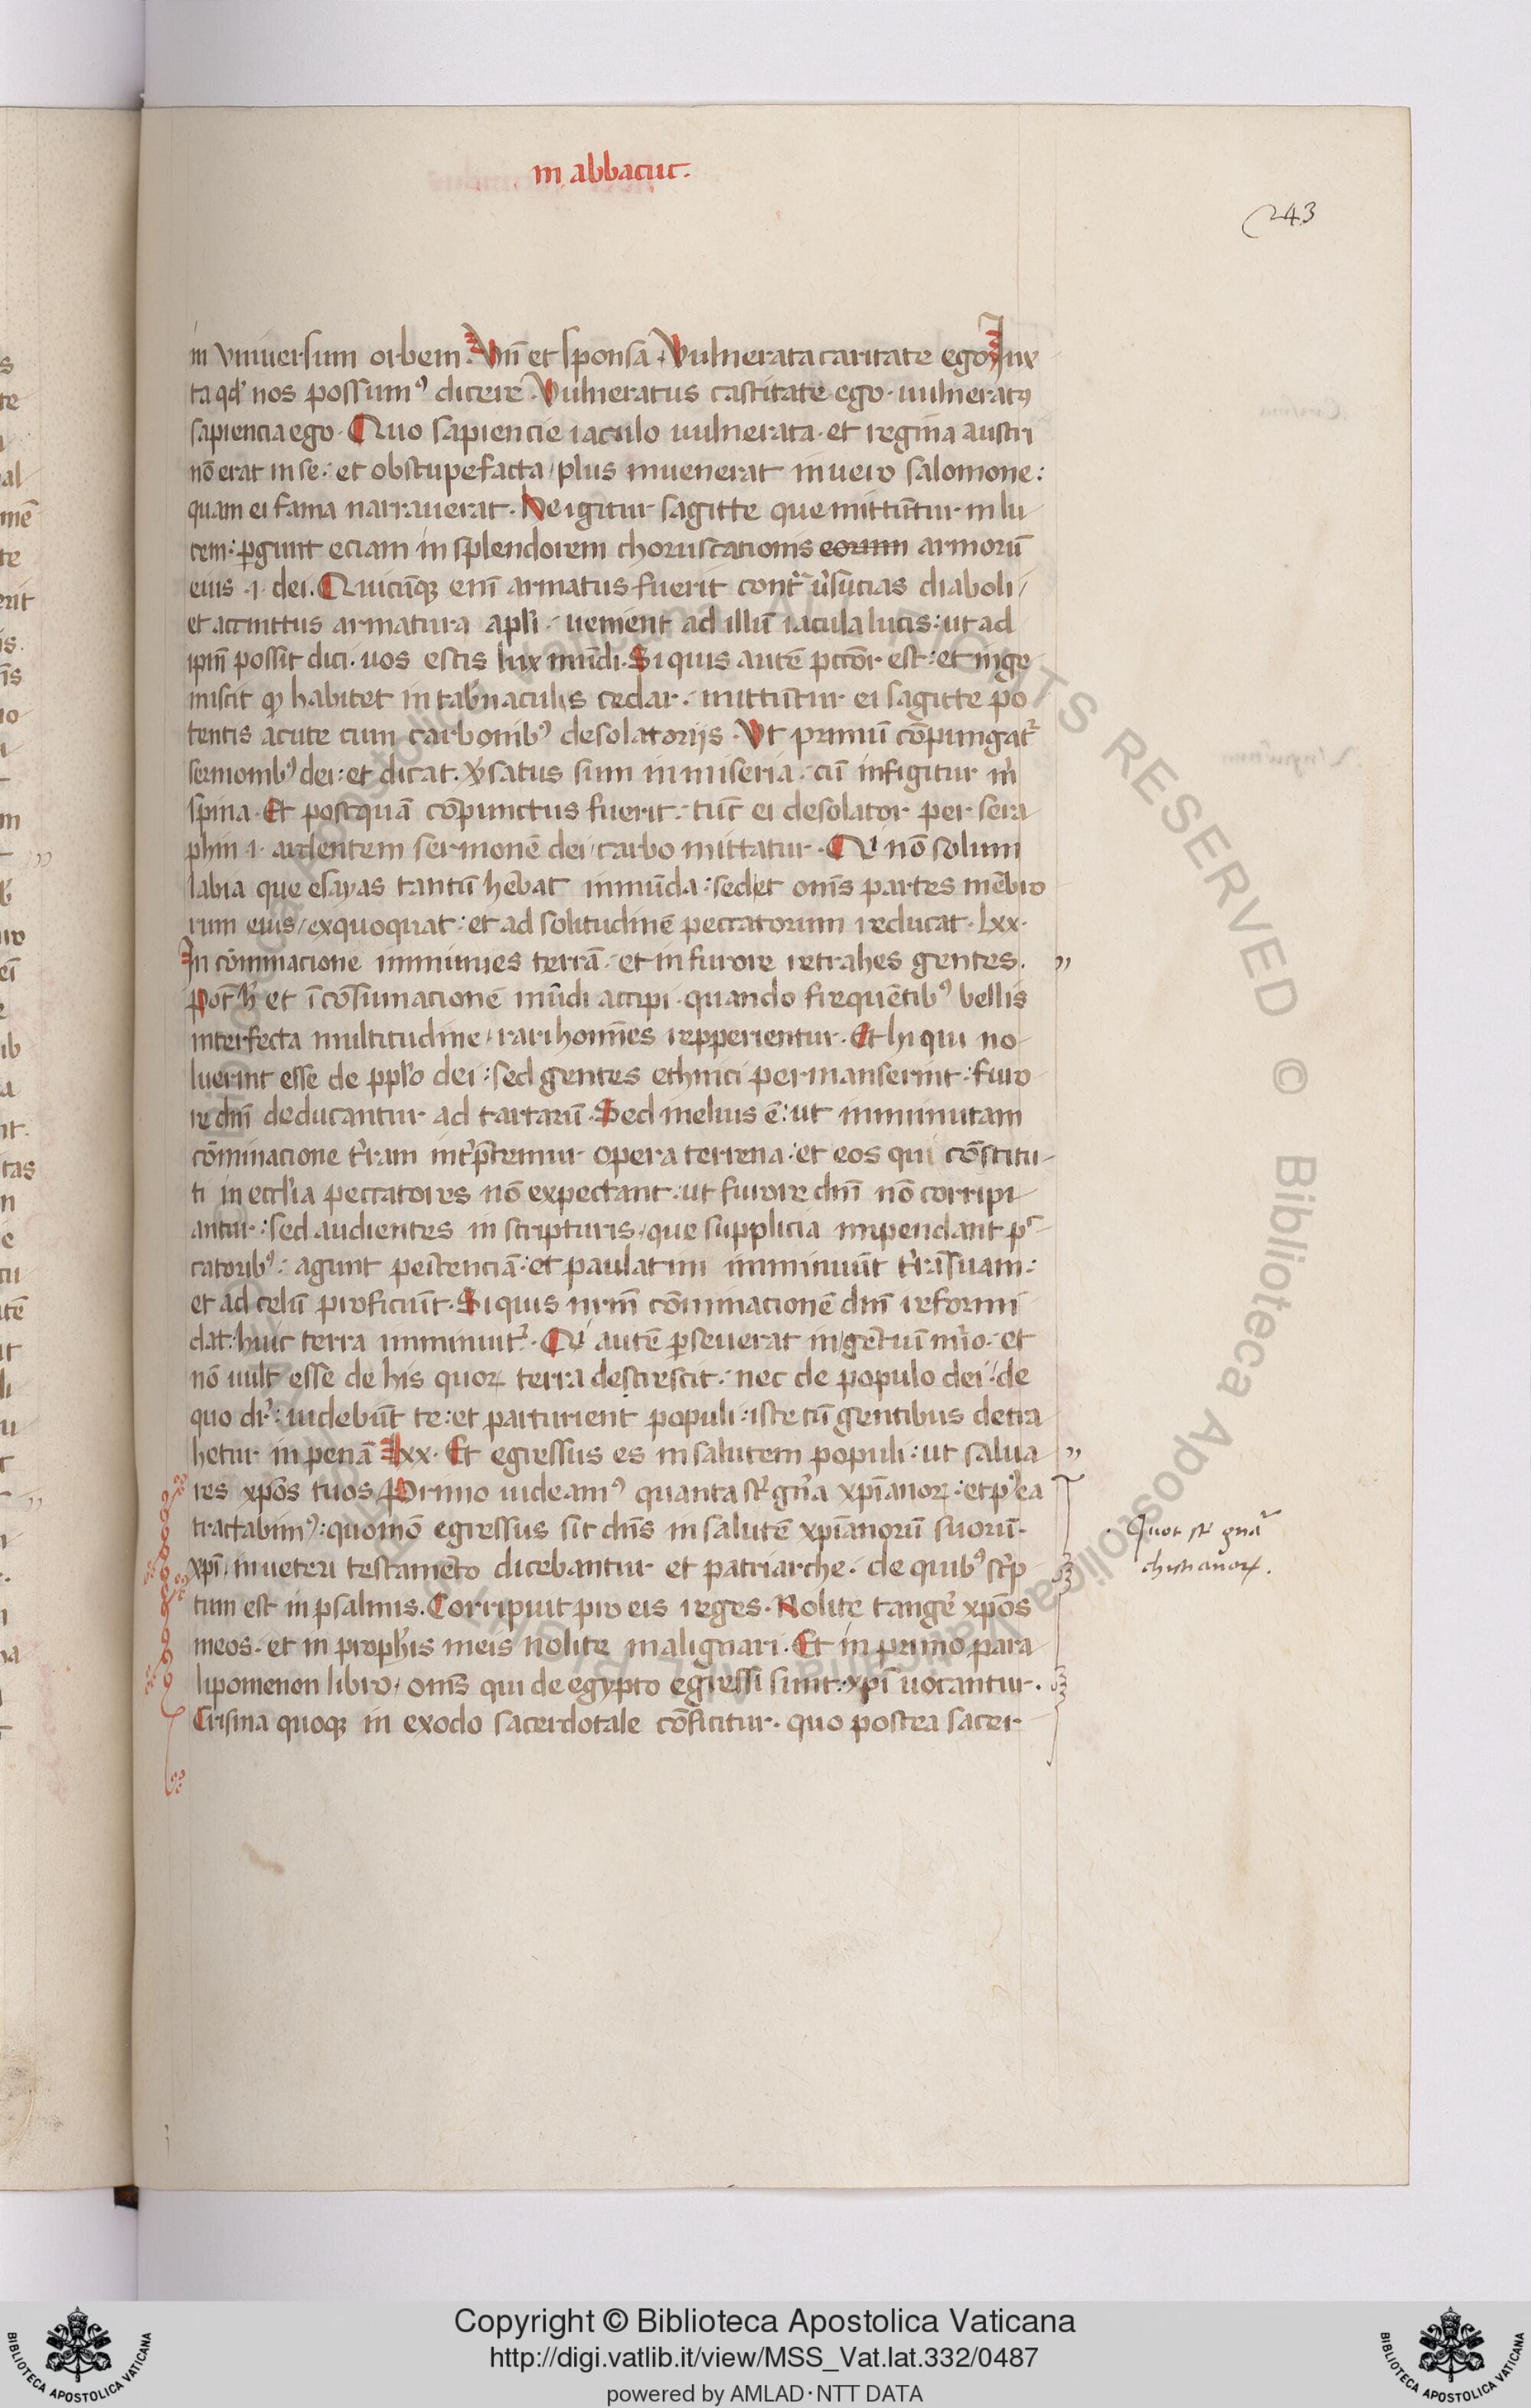 in abbacuc.
243
in vniuersum orbem. Vn̄ et sponsa. Vulnerata caritate ego. Iux
ta qd' nos possumꝰ dicere. Vulneratus castitate ego. uulneratꝰ
sapiencia ego. Quo sapiencie iaculo uulnerata. et regina austri
nō erat in se: et obstupefacta / plus inuenerat in uero salomone:
quam ei fama narrauerat. He igitur sagitte que mittūtur in lu
cem: ꝑgunt eciam in splendorem choruscationis eorum armorū
eius .i. dei. Quicūqꝫ eni armatus fuerit contᵃ u̓sucias diaboli /
et accinctus armatura apl'i. uenient ad illū iacula lucis: ut ad
ip̄m possit dici. uos estis lux mūdi. Si quis autē pctōr est: et inge
miscit ꝙ habitet in tab'naculis cedar. mittūtur ei sagitte po
tentis acute cum carbonibꝰ desolatorijs. Vt primū cōpungatᷣ
sermonibꝰ dei: et dicat. v̓satus sum in miseria. cū infigitur m̓
spina. Et postquā cōpunctus fuerit. tūc ei desolator per sera
phin .i. ardentem sermonē dei / carbo mittatur. Qi nō solum
labia que esayas tantū hēbat inmūda: sed et om̄s partes mēbro
rum eius / exquoquat: et ad solitudinē peccatorum reducat. lxx.
In cōminacione inminues terrā. et in furore retrahes gentes. ”
Pot̄ h̓ et ī cōsumacionē mūdi accipi. quando frequētibꝰ bellis
interfecta multitudine / rari homīes repperientur. Et hi qui no
luerint esse de ppl'o dei: sed gentes ethnici permanserint: furo
re dn̄i deducantur ad tartarū. Sed melius ē: ut inminutam
cōminacione t̓ram int̓p̄temur opera terrena: et eos qui cōstitu
ti in eccl'ia peccatores nō expectant. ut furore dn̄i nō corripi
antur: sed audientes in scripturis / que supplicia impendant pᶜ
catoribꝰ: agunt penītenciā: et paulatim inminuūt t̓rā suam:
et ad celū proficiūt. Si quis nr̄m cōminacionē dn̄i reformi
dat: huic terra inminuitᷣ. Qi autē ꝑseuerat in gētiū m̓io. et
nō uult esse de his quoꝝ terra descrescit. nec de populo dei: de
quo dr̄: uidebūt te: et parturient populi: iste cū gentibus detra
hetur in penā. lxx. Et egressus es in salutem populi: ut salua ”
res xp̄os tuos. Primo uideamꝰ quanta sᵗ gn̄a xp̄ianoꝝ: et pꝰea
tractabimꝰ: quomō egressus sit dn̄s in salutē xp̄ianorū suorū.
xp̄i, in ueteri testamēto dicebantur et patriarche. de quibꝰ sc̓p
tum est in psalmis. Corripuit pro eis reges. Nolite tang̓e xp̄os
meos. et in proph̓is meis nolite malignari. Et in primo para
lipomenon libro / om̄s qui de egypto egressi sunt: xp̄i uocantur.
Crisma quoqꝫ in exodo sacerdotale cōficitur. quo postea sacer
Quot sᵗ gn̄a
christianoꝝ.
Copyright © Biblioteca Apostolica Vaticana
http://digi.vatlib.it/view/MSS_Vat.lat.332/0487
powered by AMLAD·NTT DATA
BIBLIOTECA APOSTOLICA VATICANA
BIBLIOTECA APOSTOLICA VATICANA